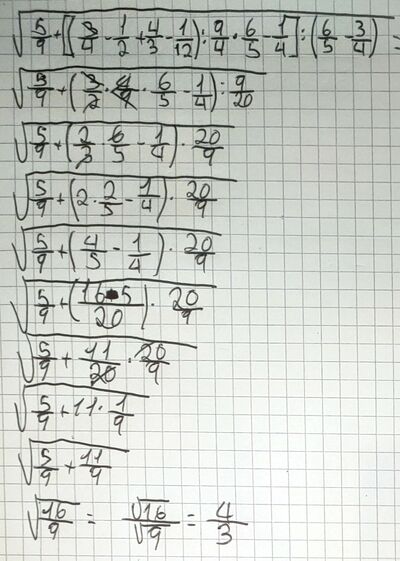 √(5/9 + [(3/4 - 1/2 + 4/3 - 1/12) : 9/4 · 6/5 - 1/4] : (6/5 - 3/4)) =
√(5/9 + (3/2 · 4/9 · 6/5 - 1/4) : 9/20)
√(5/9 + (2/3 · 6/5 - 1/4) · 20/9)
√(5/9 + (2 · 2/5 - 1/4) · 20/9)
√(5/9 + (4/5 - 1/4) · 20/9)
√(5/9 + ((16 - 5)/20) · 20/9)
√(5/9 + 11/20 · 20/9)
√(5/9 + 11 · 1/9)
√(5/9 + 11/9)
√(16/9) = √16/√9 = 4/3